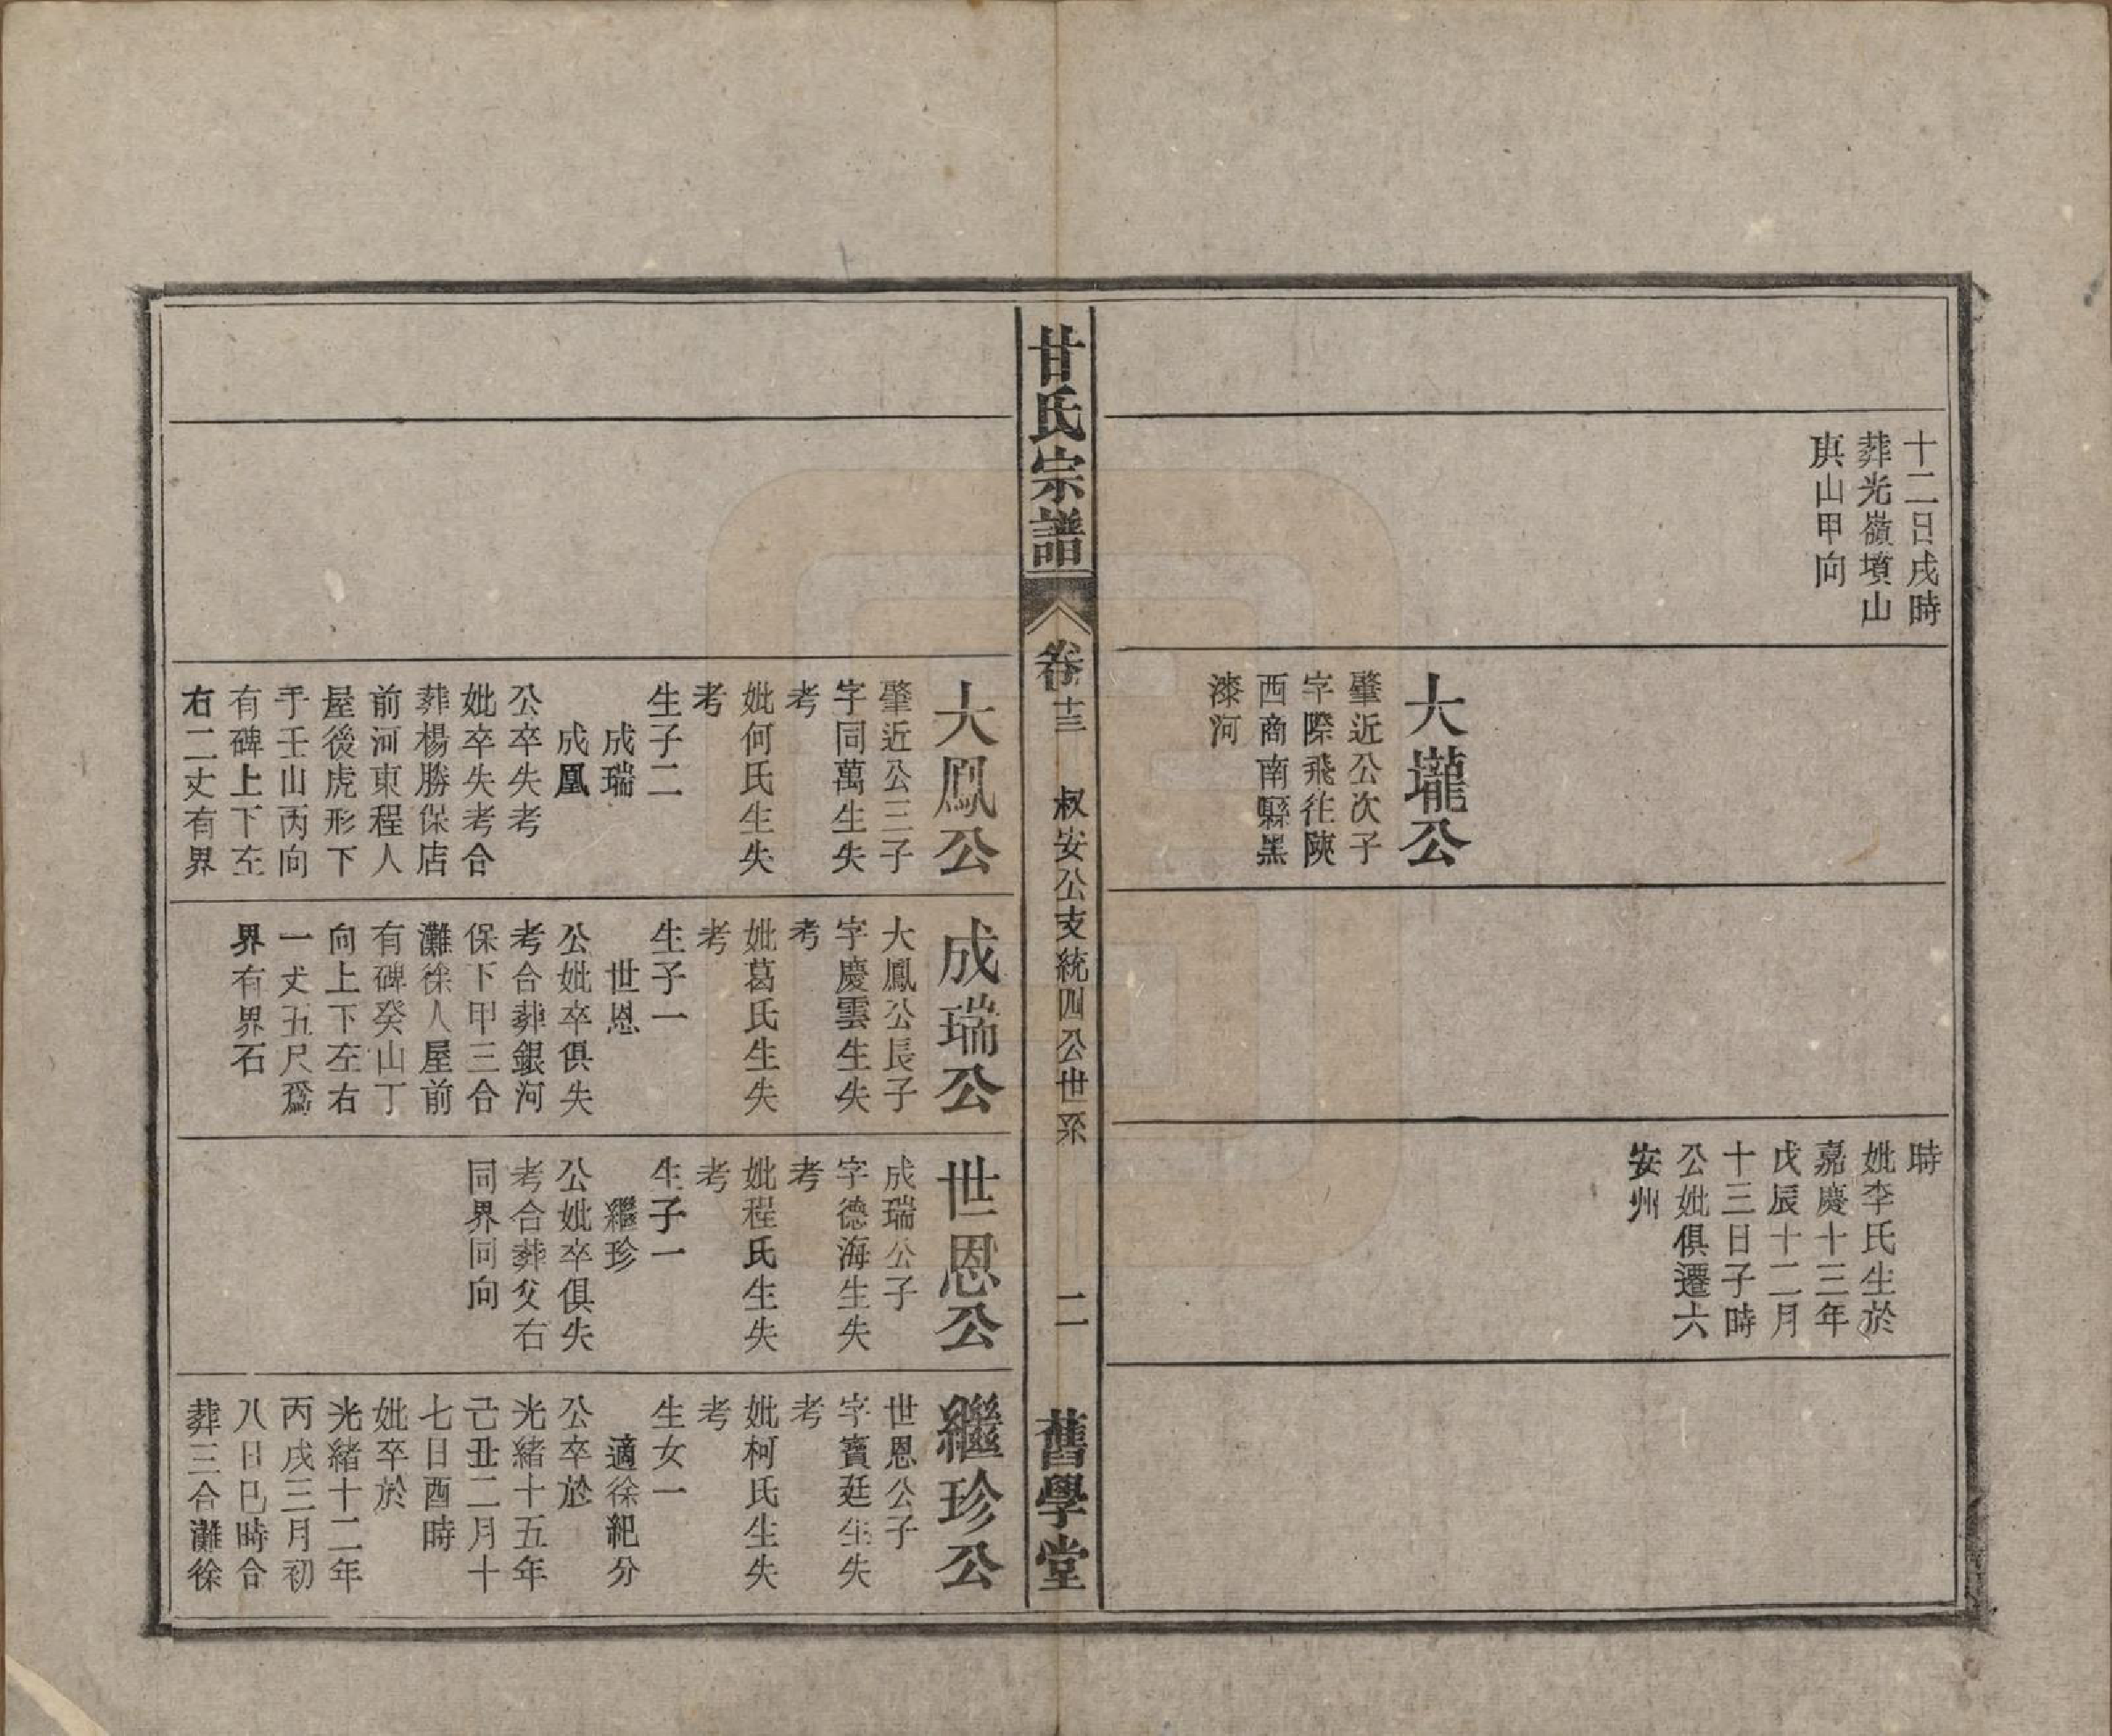 十二日戌時
葬光嶺墳山
庚山甲向
大壠公
肇近公次子
字際飛往陝
西商南縣黑
漆河
時
妣李氏生於
嘉慶十三年
戊辰十二月
十三日子時
公妣俱遷六
安州
甘氏宗譜
卷十三
叔安公支統四公世系
二
舊學堂
大鳳公
肇近公三子
字同萬生失
考
妣何氏生失
考
生子二
成瑞
成凰
公卒失考
妣卒失考合
葬楊勝保店
前河東程人
屋後虎形下
手壬山丙向
有碑上下左
右二丈有界
成瑞公
大鳳公長子
字慶雲生失
考
妣葛氏生失
考
生子一
世恩
公妣卒俱失
考合葬銀河
保下甲三合
灘徐人屋前
有碑癸山丁
向上下左右
一丈五尺爲
界有界石
世恩公
成瑞公子
字德海生失
考
妣程氏生失
考
生子一
繼珍
公妣卒俱失
考合葬父右
同界同向
繼珍公
世恩公子
字寶廷生失
考
妣柯氏生失
考
生女一
適徐紀分
公卒於
光緒十五年
己丑二月十
七日酉時
妣卒於
光緒十二年
丙戌三月初
八日巳時合
葬三合灘徐